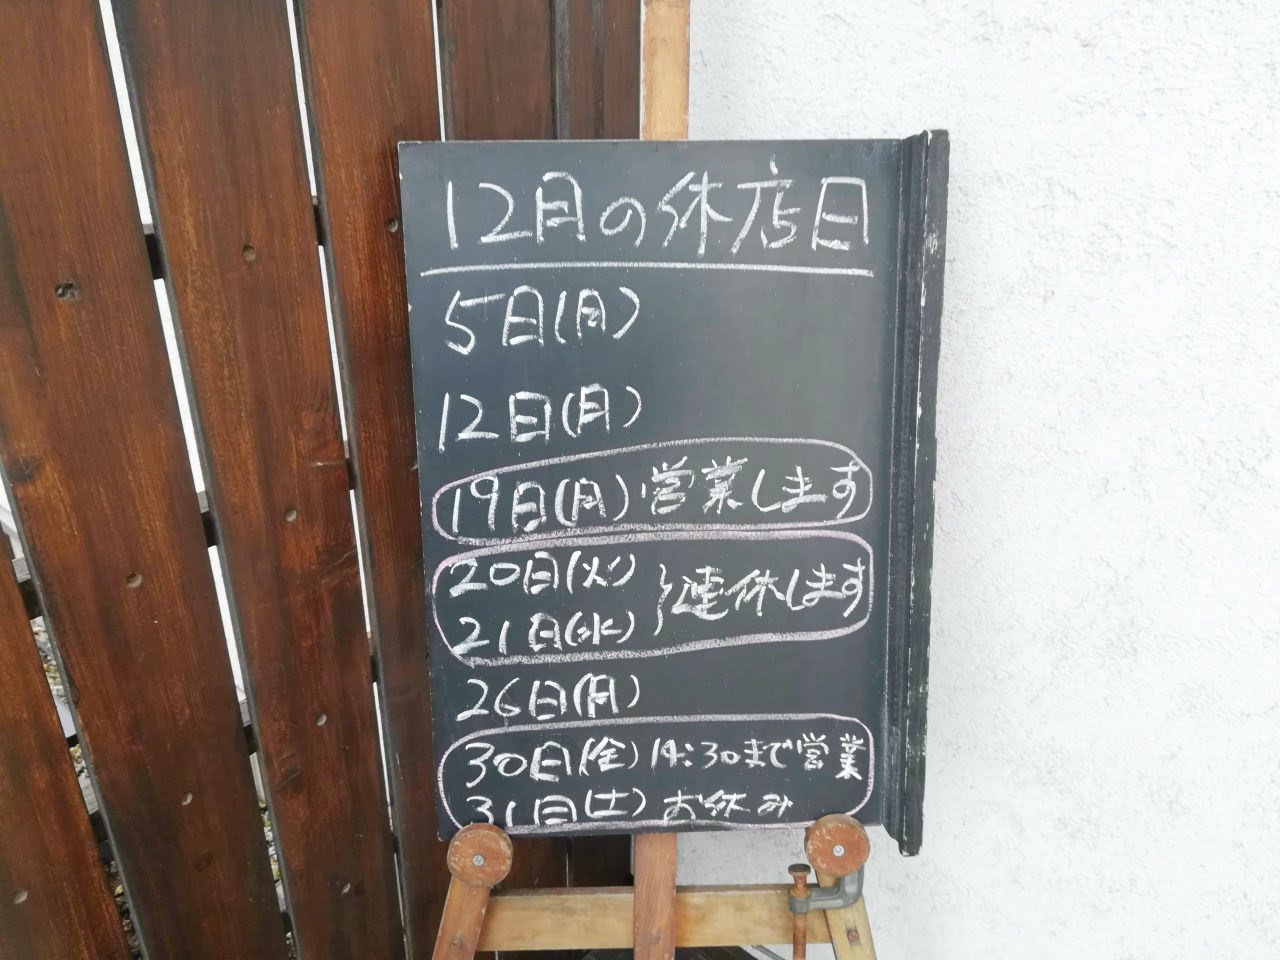 12月の休店日
5日(月)
12日(月)
19日(月)営業します
20日(火)
21日(水)
}連休します
26日(月)
30日(金)14:30まで営業
31日(土)お休み